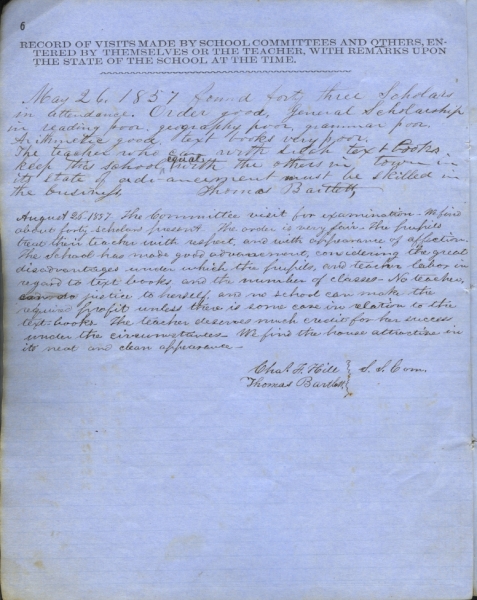 6
RECORD OF VISITS MADE BY SCHOOL COMMITTEES AND OTHERS, EN-
TERED BY THEMSELVES OR THE TEACHER, WITH REMARKS UPON
THE STATE OF THE SCHOOL AT THE TIME.
May 26, 1857 found forty three Scholars
in attendance. Order good, General Scholarship
in reading poor, geography poor, grammar poor.
Arithmetic good, text books very poor.
The teacher who can with such text books
keep this school equal with the others in town in
its state of advancement must be skilled in
the business Thomas Bartlett
August 25 1857. The Committee visit for examination. We find
about forty scholars present. The order is very fair. The pupils
treat their teacher with respect, and with appearance of affection.
The School has made good advancement, considering the great
disadvantages under which the pupils, and teacher labor in
regard to text books, and the number of classes. No teacher,
can do justice to herself, and no school can make the
required profit unless there is some care in relation to the
text-books. The teacher deserves much credit for her success
under the circumstances. We find the house attractive in
its neat and clean appearance.
Chas F. Hill
Thomas Bartlett } S. S. Com.